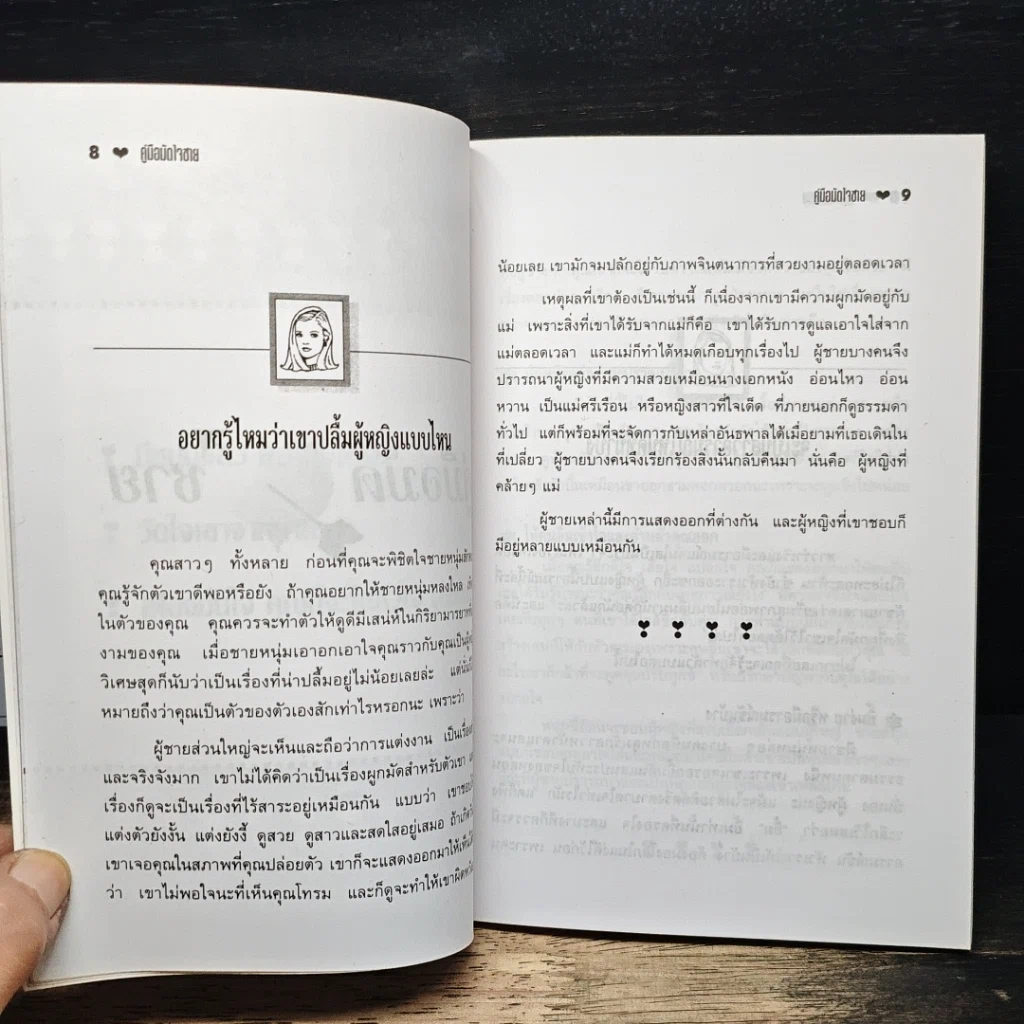 8 ❤ คู่มือมัดใจชาย
อยากรู้ไหมว่าเขาปลื้มผู้หญิงแบบไหน
คุณสาวๆ ทั้งหลาย ก่อนที่คุณจะพิชิตใจชายหนุ่มสัก
คุณรู้จักตัวเขาดีพอหรือยัง ถ้าคุณอยากให้ชายหนุ่มหลงใหล
ในตัวของคุณ คุณควรจะทำตัวให้ดูดีมีเสน่ห์ในกิริยามารยาท
งามของคุณ เมื่อชายหนุ่มเอาอกเอาใจคุณราวกับคุณเป็น
วิเศษสุดก็นับว่าเป็นเรื่องที่น่าปลื้มอยู่ไม่น้อยเลยล่ะ แต่นั่น
หมายถึงว่าคุณเป็นตัวของตัวเองสักเท่าไรหรอกนะ เพราะว่า
ผู้ชายส่วนใหญ่จะเห็นและถือว่าการแต่งงาน เป็นเรื่อง
และจริงจังมาก เขาไม่ได้คิดว่าเป็นเรื่องผูกมัดสำหรับตัวเขา
เรื่องก็ดูจะเป็นเรื่องที่ไร้สาระอยู่เหมือนกัน แบบว่า เขาชอบ
แต่งตัวยังงั้น แต่งยังงี้ ดูสวย ดูสาวและสดใสอยู่เสมอ ถ้าเกิด
เขาเจอคุณในสภาพที่คุณปล่อยตัว เขาก็จะแสดงออกมาให้เห็น
ว่า เขาไม่พอใจนะที่เห็นคุณโทรม และก็ดูจะทำให้เขาผิดหวัง
คู่มือมัดใจชาย ❤ 9
น้อยเลย เขามักจมปลักอยู่กับภาพจินตนาการที่สวยงามอยู่ตลอดเวลา
เหตุผลที่เขาต้องเป็นเช่นนี้ ก็เนื่องจากเขามีความผูกมัดอยู่กับ
แม่ เพราะสิ่งที่เขาได้รับจากแม่ก็คือ เขาได้รับการดูแลเอาใจใส่จาก
แม่ตลอดเวลา และแม่ก็ทำได้หมดเกือบทุกเรื่องไป ผู้ชายบางคนจึง
ปรารถนาผู้หญิงที่มีความสวยเหมือนนางเอกหนัง อ่อนไหว อ่อน
หวาน เป็นแม่ศรีเรือน หรือหญิงสาวที่ใจเด็ด ที่ภายนอกก็ดูธรรมดา
ทั่วไป แต่ก็พร้อมที่จะจัดการกับเหล่าอันธพาลได้เมื่อยามที่เธอเดินใน
ที่เปลี่ยว ผู้ชายบางคนจึงเรียกร้องสิ่งนั้นกลับคืนมา นั่นคือ ผู้หญิงที่
คล้ายๆ แม่
ผู้ชายเหล่านี้มีการแสดงออกที่ต่างกัน และผู้หญิงที่เขาชอบก็
มีอยู่หลายแบบเหมือนกัน